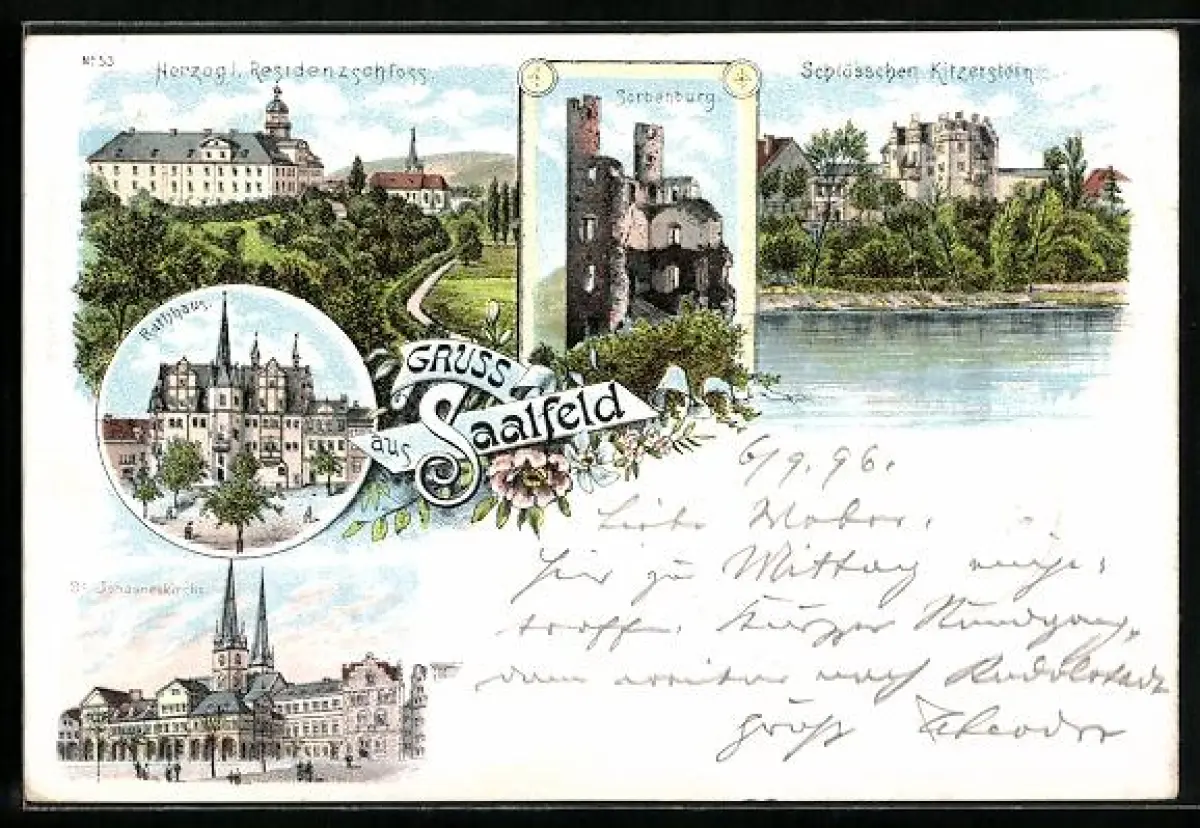 No 53
Herzogl. Residenzschloss.
Sorbenburg.
Schlösschen Kitzerstein.
Rathhaus.
GRUSS
aus Saalfeld
St. Johanneskirche
6/9. 96.
Liebe
hier zu Mittag einge-
troffen. Kurzer Rundgang,
dann weiter nach Rudolstadt
Grüßt Theodor